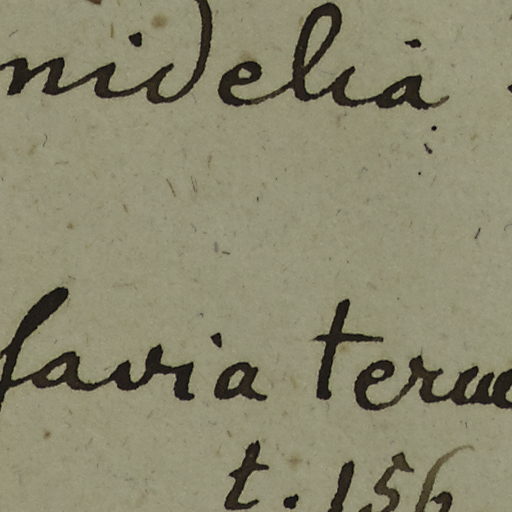 nidelia
favia terue
t. 156